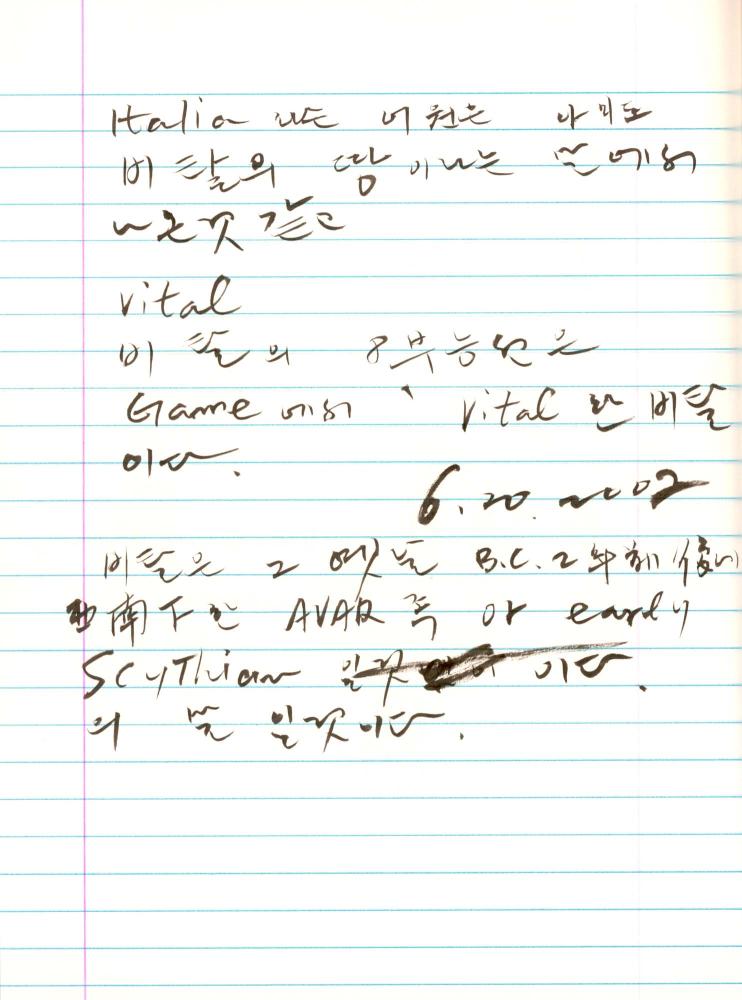 Italia 라는 어원은 아마도
비탈의 땅이나는 말에서
나온것 같고
vital
비탈의 8부능선은
Game 에서 vital 한 비탈
이다.
6.20.2002
비탈은 그 옛날 B.C. 2
南下한 AVAR 족 야 early
SCyThian 일것 이다.
의 말 일것이다.